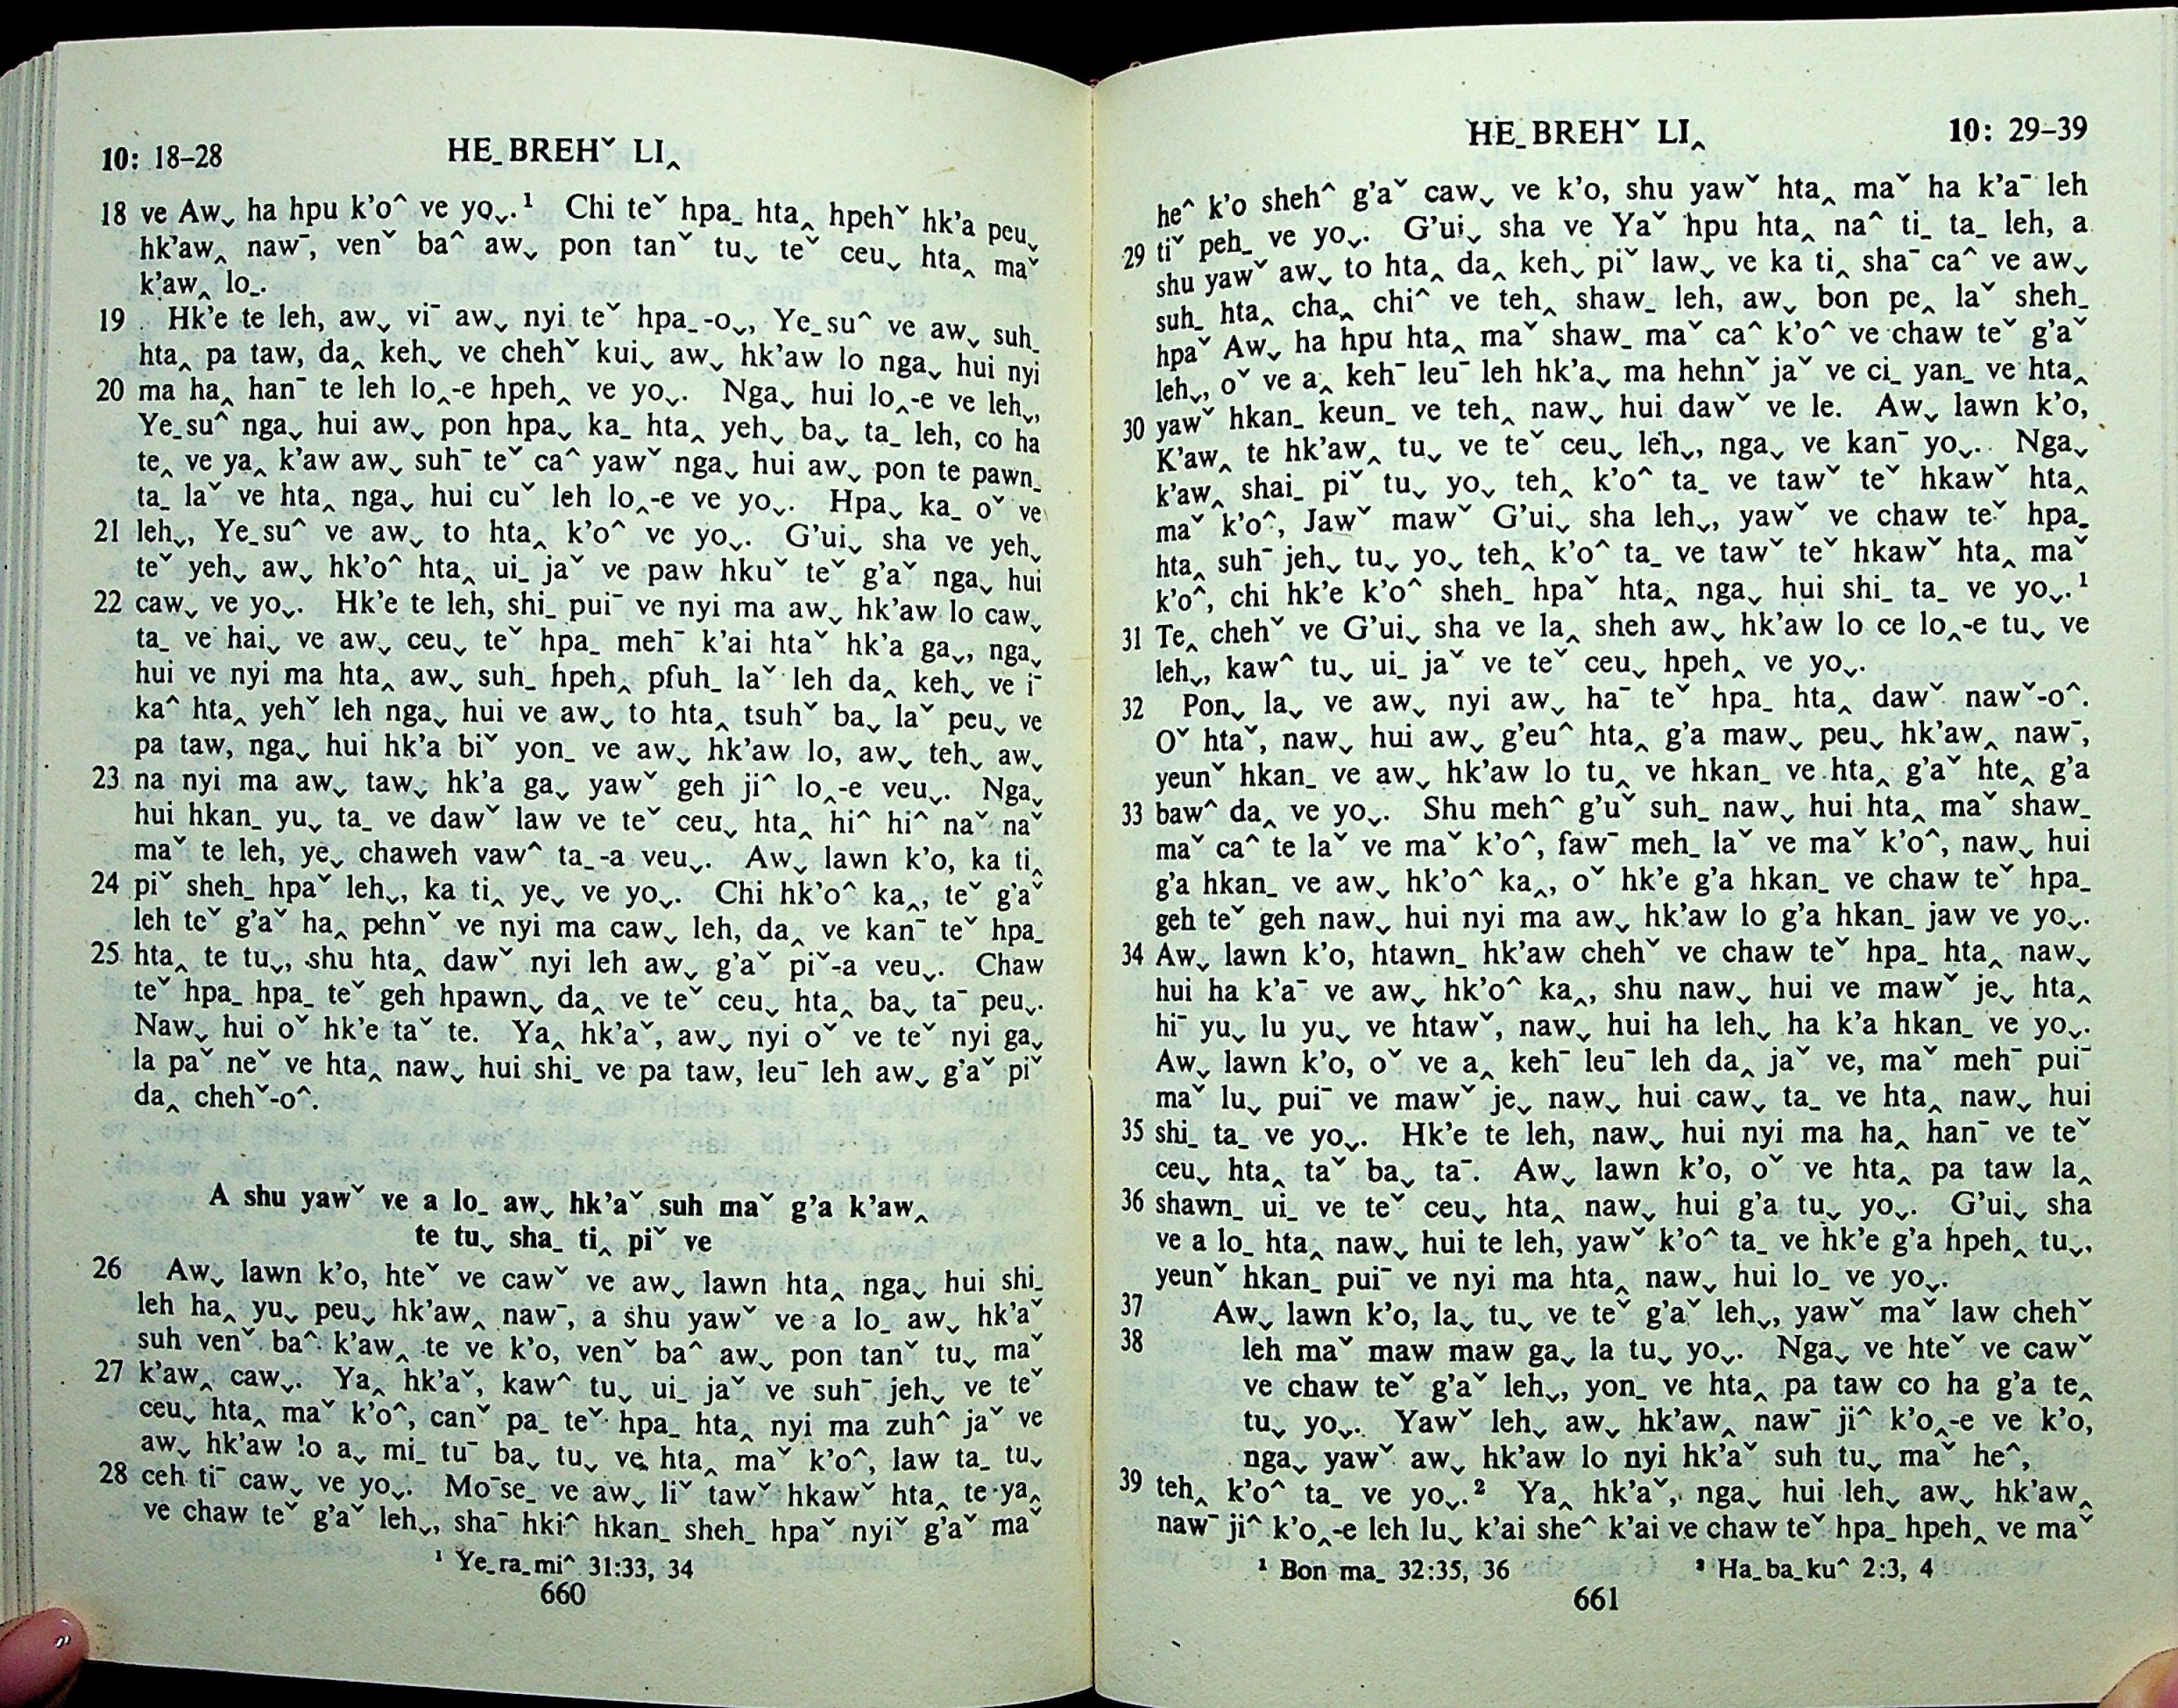 10: 18–28
HE_BREHˇ LI‸
18 ve Awˬ ha hpu k'o^ ve yoˬ.¹ Chi teˇ hpa_ hta‸ hpehˇ hk'a peuˬ
hk'aw‸ nawˉ, venˇ ba^ awˬ pon tanˇ tuˬ teˇ ceuˬ hta‸ maˇ
k'aw‸ lo_.
19 Hk'e te leh, awˬ viˉ awˬ nyi teˇ hpa_-oˬ, Ye_su^ ve awˬ suh_
hta‸ pa taw, da‸ kehˬ ve chehˇ kuiˬ awˬ hk'aw lo ngaˬ hui nyi
20 ma ha‸ hanˉ te leh lo‸-e hpeh‸ ve yoˬ. Ngaˬ hui lo‸-e ve lehˬ,
Ye_su^ ngaˬ hui awˬ pon hpaˬ ka_ hta‸ yehˬ baˬ ta_ leh, co ha
te‸ ve ya‸ k'aw awˬ suhˉ teˇ ca^ yawˇ ngaˬ hui awˬ pon te pawn_
ta_ laˇ ve hta‸ ngaˬ hui cuˇ leh lo‸-e ve yoˬ. Hpaˬ ka_ oˇ ve
21 lehˬ, Ye_su^ ve awˬ to hta‸ k'o^ ve yoˬ. G'uiˬ sha ve yehˬ
teˇ yehˬ awˬ hk'o^ hta‸ ui_ jaˇ ve paw hkuˇ teˇ g'aˇ ngaˬ hui
22 cawˬ ve yoˬ. Hk'e te leh, shi_ puiˉ ve nyi ma awˬ hk'aw lo cawˬ
ta_ ve haiˬ ve awˬ ceuˬ teˇ hpa_ mehˉ k'ai htaˇ hk'a gaˬ, ngaˬ
hui ve nyi ma hta‸ awˬ suh_ hpeh‸ pfuh_ laˇ leh da‸ kehˬ ve iˉ
ka^ hta‸ yehˇ leh ngaˬ hui ve awˬ to hta‸ tsuhˇ baˬ laˇ peuˬ ve
pa taw, ngaˬ hui hk'a biˇ yon_ ve awˬ hk'aw lo, awˬ tehˬ awˬ
23 na nyi ma awˬ tawˬ hk'a gaˬ yawˇ geh ji^ lo‸-e veuˬ. Ngaˬ
hui hkan_ yuˬ ta_ ve dawˇ law ve teˇ ceuˬ hta‸ hi^ hi^ naˇ naˇ
maˇ te leh, yeˬ chaweh vaw^ ta_-a veuˬ. Awˬ lawn k'o, ka ti‸
24 piˇ sheh_ hpaˇ lehˬ, ka ti‸ yeˬ ve yoˬ. Chi hk'o^ ka‸, teˇ g'aˇ
leh teˇ g'aˇ ha‸ pehnˇ ve nyi ma cawˬ leh, da‸ ve kanˉ teˇ hpa_
25 hta‸ te tuˬ, shu hta‸ dawˇ nyi leh awˬ g'aˇ piˇ-a veuˬ. Chaw
teˇ hpa_ hpa_ teˇ geh hpawnˬ da‸ ve teˇ ceuˬ hta‸ baˬ taˉ peuˬ.
Nawˬ hui oˇ hk'e taˇ te. Ya‸ hk'aˇ, awˬ nyi oˇ ve teˇ nyi gaˬ
la paˇ neˇ ve hta‸ nawˬ hui shi_ ve pa taw, leuˉ leh awˬ g'aˇ piˇ
da‸ chehˇ-o^.
A shu yawˇ ve a lo_ awˬ hk'aˇ suh maˇ g'a k'aw‸
te tuˬ sha_ ti‸ piˇ ve
26 Awˬ lawn k'o, hteˇ ve cawˇ ve awˬ lawn hta‸ ngaˬ hui shi_
leh ha‸ yuˬ peuˬ hk'aw‸ nawˉ, a shu yawˇ ve a lo_ awˬ hk'aˇ
suh venˇ ba^ k'aw‸ te ve k'o, venˇ ba^ awˬ pon tanˇ tuˬ maˇ
27 k'aw‸ cawˬ. Ya‸ hk'aˇ, kaw^ tuˬ ui_ jaˇ ve suhˉ jehˬ ve teˇ
ceuˬ hta‸ maˇ k'o^, canˇ pa_ teˇ hpa_ hta‸ nyi ma zuh^ jaˇ ve
awˬ hk'aw lo aˬ mi_ tuˉ baˬ tuˬ ve hta‸ maˇ k'o^, law ta_ tuˬ
28 ceh tiˉ cawˬ ve yoˬ. Moˉse_ ve awˬ liˇ tawˇ hkawˇ hta‸ te ya‸
ve chaw teˇ g'aˇ lehˬ, shaˉ hki^ hkan_ sheh_ hpaˇ nyiˇ g'aˇ maˇ
¹ Ye_ra_mi^ 31:33, 34
660
HE_BREHˇ LI‸
10: 29–39
he^ k'o sheh^ g'aˇ cawˬ ve k'o, shu yawˇ hta‸ maˇ ha k'aˉ leh
29 tiˇ peh_ ve yoˬ. G'uiˬ sha ve Yaˇ hpu hta‸ na^ ti_ ta_ leh, a
shu yawˇ awˬ to hta‸ da‸ kehˬ piˇ lawˬ ve ka ti‸ shaˉ ca^ ve awˬ
suh_ hta‸ cha‸ chi^ ve teh‸ shaw_ leh, awˬ bon pe‸ laˇ sheh_
hpaˇ Awˬ ha hpu hta‸ maˇ shaw_ maˇ ca^ k'o^ ve chaw teˇ g'aˇ
lehˬ, oˇ ve a‸ kehˉ leuˉ leh hk'aˬ ma hehnˇ jaˇ ve ci_ yan_ ve hta‸
30 yawˇ hkan_ keun_ ve teh‸ nawˬ hui dawˇ ve le. Awˬ lawn k'o,
K'aw‸ te hk'aw‸ tuˬ ve teˇ ceuˬ lehˬ, ngaˬ ve kanˉ yoˬ. Ngaˬ
k'aw‸ shai_ piˇ tuˬ yoˬ teh‸ k'o^ ta_ ve tawˇ teˇ hkawˇ hta‸
maˇ k'o^, Jawˇ mawˇ G'uiˬ sha lehˬ, yawˇ ve chaw teˇ hpa_
hta‸ suhˉ jehˬ tuˬ yoˬ teh‸ k'o^ ta_ ve tawˇ teˇ hkawˇ hta‸ maˇ
k'o^, chi hk'e k'o^ sheh_ hpaˇ hta‸ ngaˬ hui shi_ ta_ ve yoˬ.¹
31 Te‸ chehˇ ve G'uiˬ sha ve la‸ sheh awˬ hk'aw lo ce lo‸-e tuˬ ve
lehˬ, kaw^ tuˬ ui_ jaˇ ve teˇ ceuˬ hpeh‸ ve yoˬ.
32 Ponˬ laˬ ve awˬ nyi awˬ haˉ teˇ hpa_ hta‸ dawˇ nawˇ-o^.
Oˇ htaˇ, nawˬ hui awˬ g'eu^ hta‸ g'a mawˬ peuˬ hk'aw‸ nawˉ,
yeunˇ hkan_ ve awˬ hk'aw lo tu‸ ve hkan_ ve hta‸ g'aˇ hte‸ g'a
33 baw^ da‸ ve yoˬ. Shu meh^ g'uˇ suh_ nawˬ hui hta‸ maˇ shaw_
maˇ ca^ te laˇ ve maˇ k'o^, fawˉ meh_ laˇ ve maˇ k'o^, nawˬ hui
g'a hkan_ ve awˬ hk'o^ ka‸, oˇ hk'e g'a hkan_ ve chaw teˇ hpa_
geh teˇ geh nawˬ hui nyi ma awˬ hk'aw lo g'a hkan_ jaw ve yoˬ.
34 Awˬ lawn k'o, htawn_ hk'aw chehˇ ve chaw teˇ hpa_ hta‸ nawˬ
hui ha k'aˉ ve awˬ hk'o^ ka‸, shu nawˬ hui ve mawˇ jeˬ hta‸
hiˉ yuˬ lu yuˬ ve htawˇ, nawˬ hui ha lehˬ ha k'a hkan_ ve yoˬ.
Awˬ lawn k'o, oˇ ve a‸ kehˉ leuˉ leh da‸ jaˇ ve, maˇ mehˉ puiˉ
maˇ luˬ puiˉ ve mawˇ jeˬ nawˬ hui cawˬ ta_ ve hta‸ nawˬ hui
35 shi_ ta_ ve yoˬ. Hk'e te leh, nawˬ hui nyi ma ha‸ hanˉ ve teˇ
ceuˬ hta‸ taˇ baˬ taˉ. Awˬ lawn k'o, oˇ ve hta‸ pa taw la‸
36 shawn_ ui_ ve teˇ ceuˬ hta‸ nawˬ hui g'a tuˬ yoˬ. G'uiˬ sha
ve a lo_ hta‸ nawˬ hui te leh, yawˇ k'o^ ta_ ve hk'e g'a hpeh‸ tuˬ,
yeunˇ hkan_ puiˉ ve nyi ma hta‸ nawˬ hui lo_ ve yoˬ.
37 Awˬ lawn k'o, laˬ tuˬ ve teˇ g'aˇ lehˬ, yawˇ maˇ law chehˇ
38 leh maˇ maw maw gaˬ la tuˬ yoˬ. Ngaˬ ve hteˇ ve cawˇ
ve chaw teˇ g'aˇ lehˬ, yon_ ve hta‸ pa taw co ha g'a te‸
tuˬ yoˬ. Yawˇ lehˬ awˬ hk'aw‸ nawˉ ji^ k'o‸-e ve k'o,
ngaˬ yawˇ awˬ hk'aw lo nyi hk'aˇ suh tuˬ maˇ he^,
39 teh‸ k'o^ ta_ ve yoˬ.² Ya‸ hk'aˇ, ngaˬ hui lehˬ awˬ hk'aw‸
nawˉ ji^ k'o‸-e leh luˬ k'ai she^ k'ai ve chaw teˇ hpa_ hpeh‸ ve maˇ
¹ Bon ma_ 32:35, 36
² Ha_ba_ku^ 2:3, 4
661